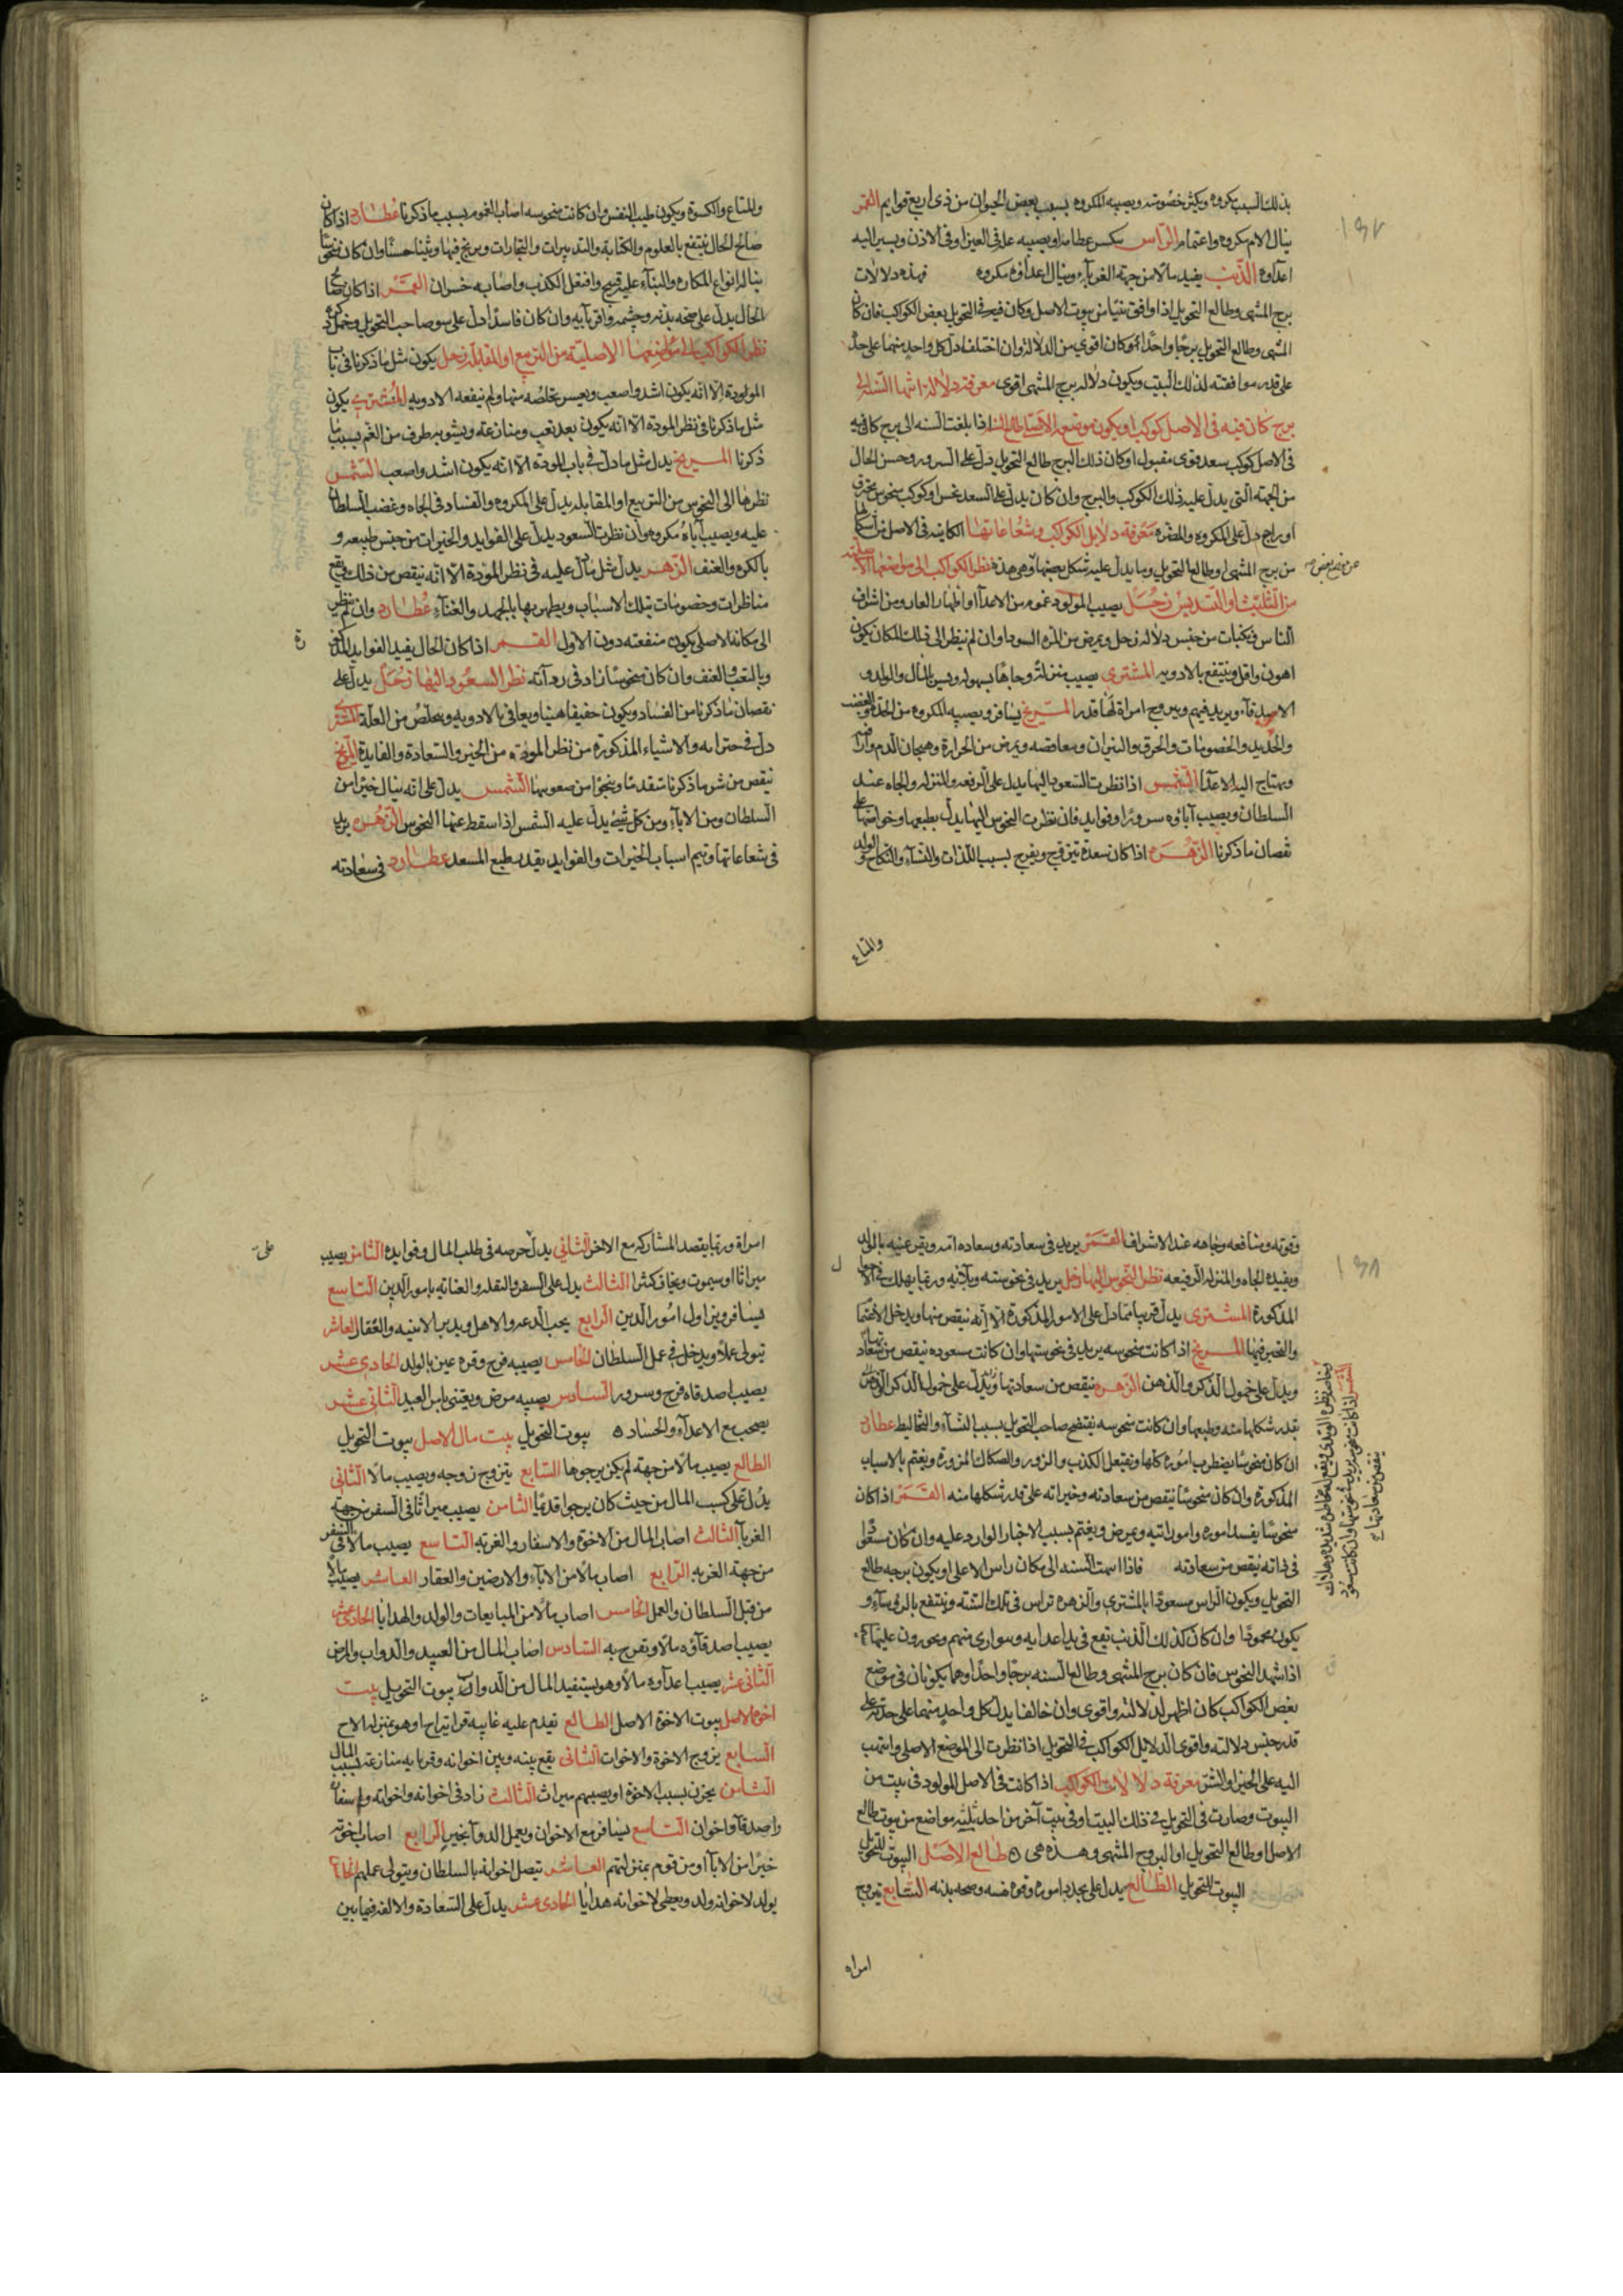 بذلك السبب مكروه ويكثر خصومته ويصيبه المكروه بسبب بعض الحيوان من ذى اربع قوايم القمر
ينال الام مكروه واغتمام الراس ينكسر عظامه او يصيبه علة فى العين او فى الاذن ويسير اليه
اعداوه الذنب يفيد مالا من جهة الغرباء وينال اعداؤه مكروه فهذه دلالات
برج المنتهى وطالع التحويل اذا وافق بيتا من بيوت الاصل وكان فيه فى التحويل بعض الكواكب فان كان
المنتهى وطالع التحويل برجا واحدا كان اقوى من الدلالة وان اختلفا دل كل واحد منهما على حدة
على قدر موافقته لذلك البيت ويكون دلالة برج المنتهى اقوى معرفة دلالة انتهاء السنة الى
برج كان فيه فى الاصل كوكب او يكون موضعه الاصلى طالع السنة اذا بلغت السنه الى برج كان فيه
فى الاصل كوكب سعد قوى مقبول او كان ذلك البرج طالع التحويل دل على السرور وحسن الحال
من الجهة التى يدل عليه ذلك الكوكب والبرج وان كان بدل السعد نحس او كوكب منحوس محترق
او راجع دل على المكروه والمضرة معرفة دلايل الكواكب وشعاعاتها الكاينه فى الاصل
من برج المنتهى او طالع التحويل وما يدل عليه شكل بعضها وهى هذه نظر الكواكب الى مواضعها الاصلية
من التثليث او التسديس زحل يصيب المولود غموم من الاعدا او اظهار العار ومن اشراف
الناس ونكبات من جنس دلالة زحل ويمرض من المرة السودا وان لم ينظر الى ذلك المكان يكون
اهون واقل وينتفع بالادويه المشترى يصيب منزلة وجاها بسهوله ويسر بالمال والولد و
الاصدقاء ويزيد فيهم ويتزوج امراة لها قدر المريخ يسافر ويصيبه المكروه من الحدة والغضب
والحديد والخصومات والحرق والنيران ومعارضه ويمرض من الحرارة وهيجان الدم
ويحتاج اليه الاعدا الشمس اذا نظرت السعود اليها يدل على الرفعه والمنزلة والجاه عند
السلطان ويصيب آباؤه سرورا وفوايد فان نظرت النحوس اليها يدل بطبعها وخواصها على
نقصان ما ذكرنا الزهره اذا كان سعدة يتزوج ويفرح بسبب اللذات والنساء والنكاح والولد
والمتاع
وللمتاع والكسوة ويكون طيب النفس وان كانت منحوسه اصاب الغموم بسبب ما ذكرنا عطارد اذا كان
صالح الحال ينتفع بالعلوم والكتابة والتدبيرات والتجارات ويربح فيها وثنا حسنا وان كان منحوسا
يناله انواع المكاره والثناء عليه قبيح وافتعل الكذب واصابه خسران القمر اذا كان صالح
الحال يدل على صحه بدنه وحشمه واقربايه وان كان فاسدا دل على سو صاحب التحويل وخمول ذكره
نظر الكواكب الى مواضعها الاصلية من التربيع او المقابلة زحل يكون مثل ما ذكرنا فى باب
المودة الا انه يكون اشد واصعب ويعسر تخلصه منها ولم ينفعه الادويه المشترى يكون
مثل ما ذكرنا فى نظر المودة الا انه يكون بعد تعب ومنازعة ويشوبه طرف من الغم بسبب ما
ذكرنا المريخ يدل مثل ما دل فى باب المودة الا انه يكون اشد واصعب الشمس
نظرها الى النحوس من التربيع او المقابله يدل على المكروه والفساد فى الجاه وغضب السلطان
عليه ويصيب آباه مكروه وان نظرت السعود يدل على الفوايد والخيرات من جنس طبيعه و
بالكره والعنف الزهره يدل مثل ما دل عليه فى نظر المودة الا انه ينقص من ذلك ويقع
مناظرات وخصومات بتلك الاسباب ويظهر بها بالجهد والعناء عطارد وان لم ينظر
الى مكانه الاصلى يكون منفعته دون الاول القمر اذا كان صالح الحال يفيد الفوايد المذكورة
وبالتعب والعنف وان كان منحوسا زاد فى رداءته نظر السعود اليها زحل يدل على
نقصان ما ذكرنا من الفساد ويكون خفيفا هينا ويعافى بالادويه ويتخلص من العلة المشترى
دل فى خيراته والاشياء المذكورة من نظر المودة من الخير والسعادة والفايدة المريخ
ينقص من شر ما ذكرنا متقدما وينجو من صعوبتها الشمس يدل على انه ينال خيرا من
السلطان ومن الاباء ومن كل شئ يدل عليه الشمس اذا سقط عنها النحوس الزهره يزيد
فى شعاعاتها وتيم اسباب الخيرات والفوايد بقدر طبع المسعد عطارد فى سعادته
وقوته ومنافعه وجاهه عند الاشراف القمر يزيد فى سعادته وسعاده امه وتقر عينه بالولد
ويفيده الجاه والمنزلة الرفيعه نظر النحوس اليها زحل يزيد فى نحوسته وبلائه وربما يهلك فى الاحوال
المذكورة المشترى يدل قريبا مما دل على الامور المذكورة الا انه ينقص منها ويدخل الاغتمام
والضجر فيها المريخ اذا كانت منحوسه يزيد فى نحوستها وان كانت سعوده ينقص من سعادتها
ويدل على خمول الذكر والذهن الزهره ينقص من سعادتها ويدل على خمول الذكر
بقدر شكلها منه وطبعها وان كانت منحوسه يفتضح صاحب التحويل بسبب النساء والتخاليط عطارد
ان كان منحوسا يضطرب اموره كلها ويفتعل الكذب والزور والصكاك المزورة ويغتم بالاسباب
المذكوره وان كان منحوسا ينقص من سعادته وخيراته على قدر شكلها منه القمر اذا كان
منحوسا يفسد اموره وامور اتيه ويمرض ويغتم بسبب الاخبار الوارد عليه وان كان مسعودا
فى ذاته ينقص من سعادته فاذا انتهت السنه الى مكان راس الاعلى او يكون برجه طالع
التحويل ويكون الراس مسعودا بالمشترى والزهره تراس فى تلك السنه وينتفع بالرؤساء و
يكون محمودا وان كان كذلك الذنب تقع فى بدا عدايه وسوارى منهم ويجورون عليه
اذا شهد النحوس فان كان برج المنتهى وطالع السنه برجا واحدا وهما يكونان فى موضع
بعض الكواكب كان اظهر لدلالته واقوى وان خالفا يدل كل واحد منهما على حدته على
قدر جنس دلالته واقوى الدلايل الكواكب فى التحويل اذا نظرت الى الموضع الاصلى وانتهت
اليه على الخير او الشر معرفة دلالات الكواكب اذا كانت فى الاصل المولود فى بيت من
البيوت وصارت فى التحويل فى ذلك البيت او فى بيت آخر من احد ثلثة مواضع من بيوت طالع
الاصل او طالع التحويل او البروج المنتهى وهذه هى طالع الاصل البيوت للتحويل
البيوت للتحويل الطالع يدل على تجديد اموره وقوة نفسه وصحه بدنه السابع يتزوج
امراه
امراة وربما يقصد المشاركه مع الاخر الثانى يدل حرصه فى طلب المال وفوايده الثامن يصيب
ميراثا او سيموت ويخاف كثيرا الثالث يدل على السفر والنقله والعنايه بامور الدين التاسع
يسافر ويزاول امور الدين الرابع يحب الدعه والاهل ويدبر الابنيه والعقار العاشر
يتولى عملا ويدخل فى عمل السلطان الخامس يصيبه فرح وقره عين بالولد الحادى عشر
يصيب اصدقاه فرح وسرور السادس يصيبه مرض ويعتنى بامر العبيد الثانى عشر
يصحب مع الاعداء والحساد بيوت التحويل بيت مال الاصل بيوت التحويل
الطالع يصيب مالا من جهة لم يكن يرجوها السابع يتزوج زوجه ويصيب مالا الثانى
يدل على كسب المال من حيث كان يرجوا قديما الثامن يصيب ميراثا فى السفر من جهة
الغربا الثالث اصاب المال من الاخوة والاسفار والغربه التاسع يصيب مالا فى السفر
من جهة الغربه الرابع اصاب مالا من الاباء والارضين والعقار العاشر يصيب مالا
من قبل السلطان والعمل الخامس اصاب مالا من المبايعات والولد والهدايا الحادى عشر
يصيب اصدقاؤه مالا ويفرح به السادس اصاب المال من العبيد والدواب والمرض
الثانى عشر يصيب اعداوه مالا وهو يستفيد المال من الدواب بيوت التحويل بيت
اخوة الاصل بيوت الاخوة الاصل الطالع تقدم عليه غايبه قرابته اخ او هو بمنزلة الاخ
السابع يزوج الاخوة والاخوات الثانى يقع بينه وبين اخوانه وقرابه منازعه بسبب المال
الثامن يحزن بسبب الاخوة او يصيبهم ميراث الثالث زاد فى اخوانه واخواته واسفار
واصدقا واخوان التاسع يسافر مع الاخوان ويعمل الدوا بخير الرابع اصاب اخوته
خيرا من الابا او من قوم بمنزلتهم العاشر يتصل اخوانه بالسلطان ويتولى عملهم الخامس
يولد لاخوانه ولد ويعطى لاخوانه هدايا الحادى عشر يدل على السعادة والالفه فيما بين